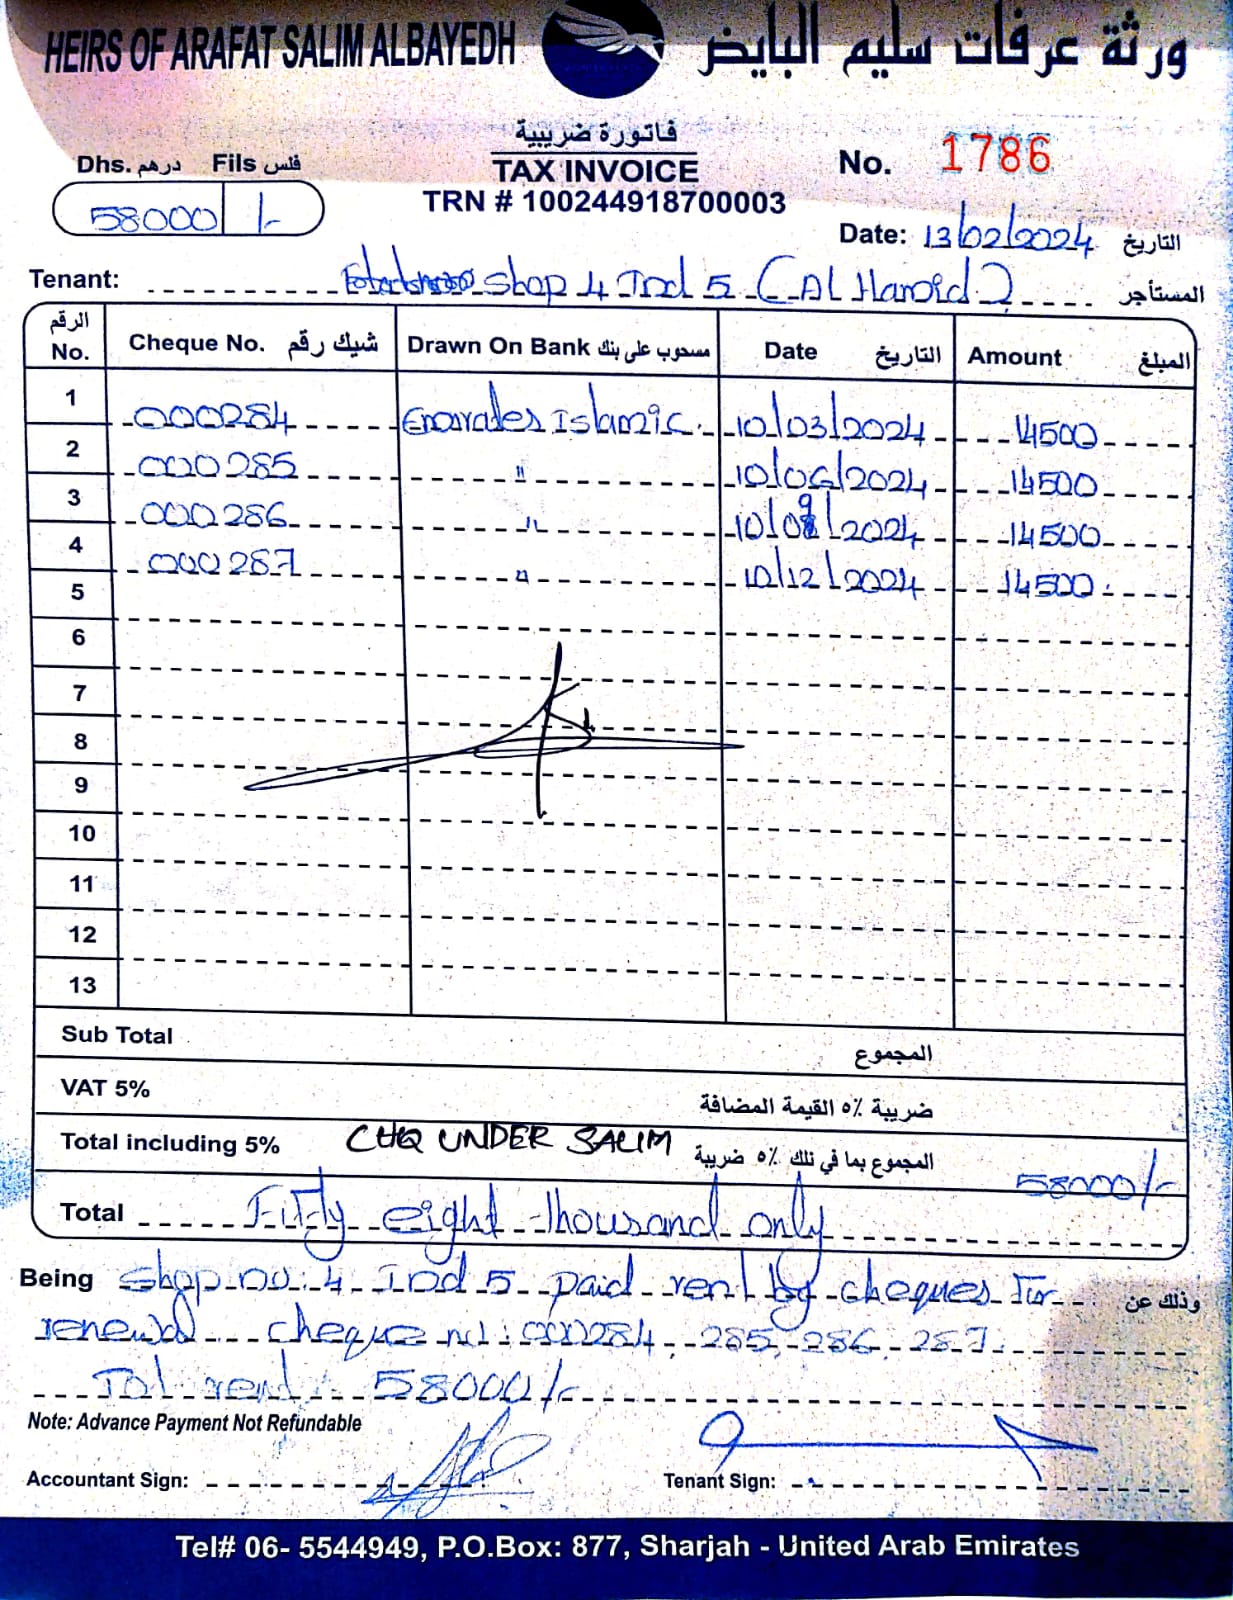 HEIRS OF ARAFAT SALIM ALBAYEDH ورثة عرفات سليم البايض
فاتورة ضريبية
TAX INVOICE
TRN # 100244918700003
Dhs. درهم Fils فلس
58000 /-
No. 1786
Date: 13/02/2024 التاريخ
Tenant: Shop 4 Ind 5 (Al Haroid) المستأجر
الرقم No. Cheque No. شيك رقم Drawn On Bank مسحوب على بنك Date التاريخ Amount المبلغ
1 000284 Emirates Islamic 10/03/2024 14500
2 000285 " 10/06/2024 14500
3 000286 " 10/09/2024 14500
4 000287 " 10/12/2024 14500
5
6
7
8
9
10
11
12
13
Sub Total المجموع
VAT 5% ضريبة ٥٪ القيمة المضافة
Total including 5% CHQ UNDER SALIM المجموع بما في تلك ٥٪ ضريبة 58000/-
Total Fifty eight thousand only
Being Shop no: 4 Ind 5 paid rent by cheques for وذلك عن
renewal cheque no: 000284, 285, 286, 287.
Tot rent: 58000/-
Note: Advance Payment Not Refundable
Accountant Sign: Tenant Sign:
Tel# 06- 5544949, P.O.Box: 877, Sharjah - United Arab Emirates